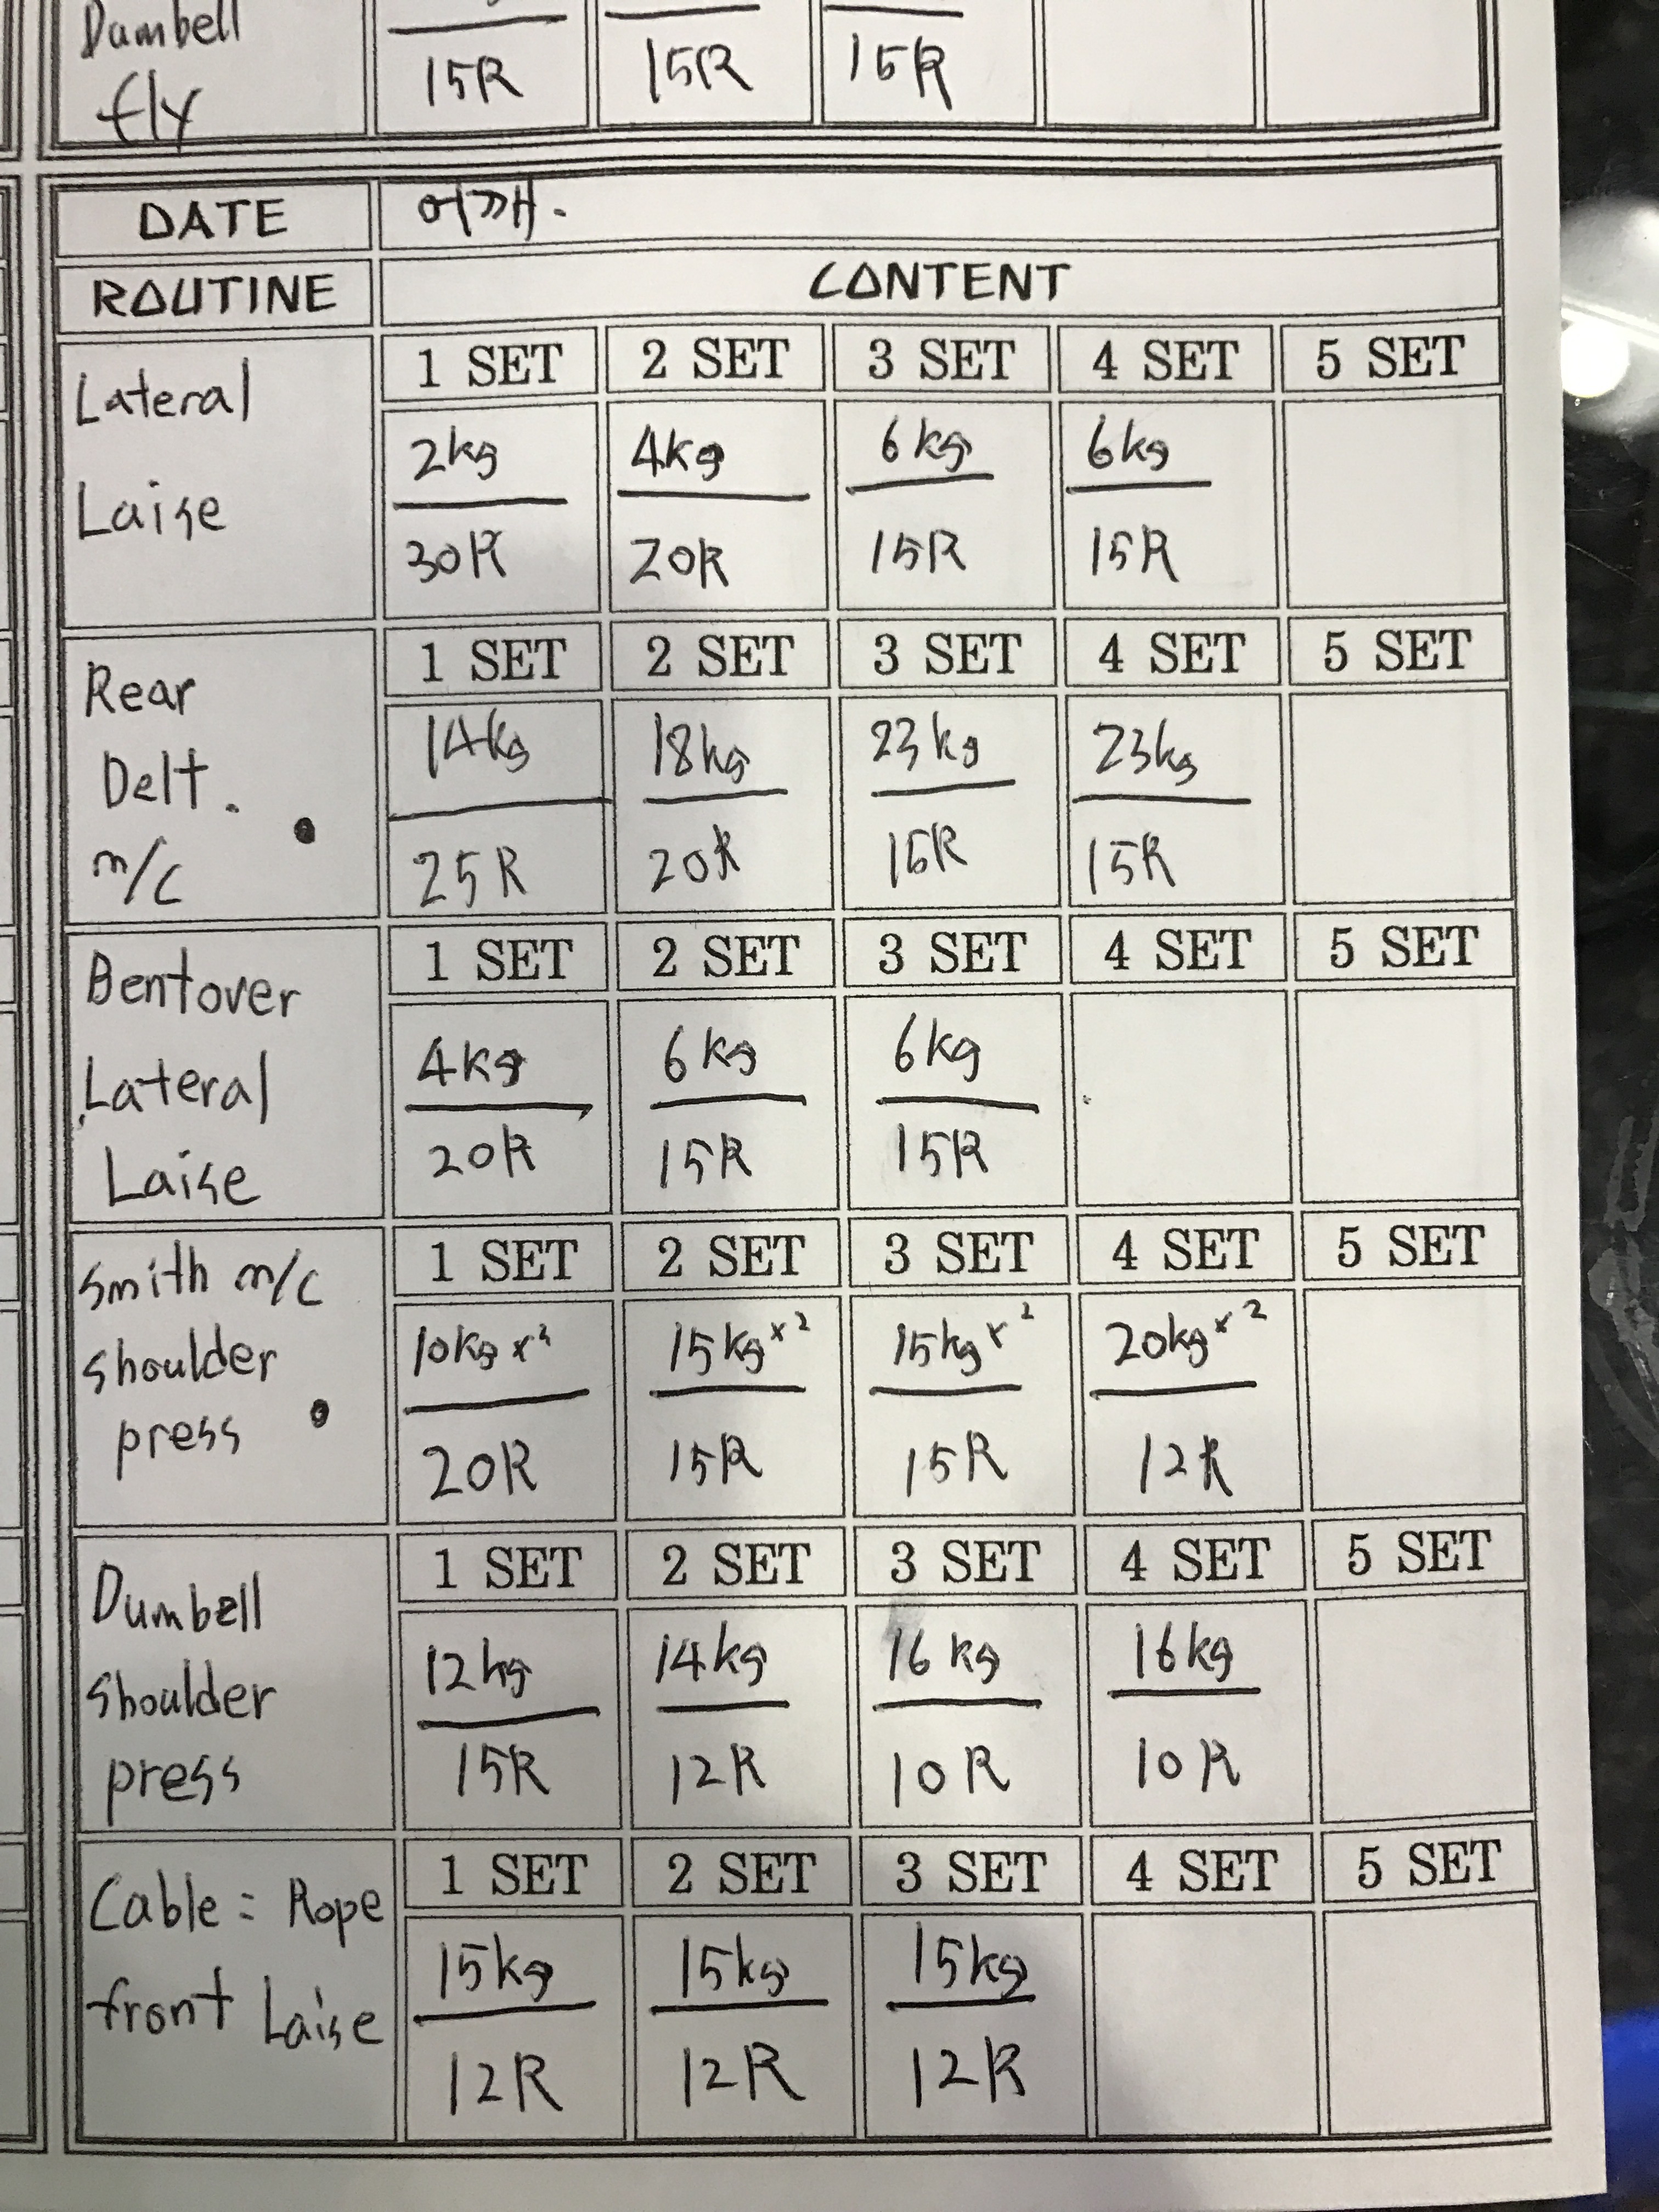 Dumbell
fly
15R 15R 15R
DATE 어깨.
ROUTINE CONTENT
Lateral
Laise
1 SET 2 SET 3 SET 4 SET 5 SET
2kg 4kg 6kg 6kg
30R 20R 15R 15R
Rear
Delt.
m/c
1 SET 2 SET 3 SET 4 SET 5 SET
14kg 18kg 23kg 23kg
25R 20R 15R 15R
Bentover
Lateral
Laise
1 SET 2 SET 3 SET 4 SET 5 SET
4kg 6kg 6kg
20R 15R 15R
Smith m/c
shoulder
press
1 SET 2 SET 3 SET 4 SET 5 SET
10kg x2 15kg x2 15kg x2 20kg x2
20R 15R 15R 12R
Dumbell
shoulder
press
1 SET 2 SET 3 SET 4 SET 5 SET
12kg 14kg 16kg 16kg
15R 12R 10R 10R
Cable = Rope
front Laise
1 SET 2 SET 3 SET 4 SET 5 SET
15kg 15kg 15kg
12R 12R 12R